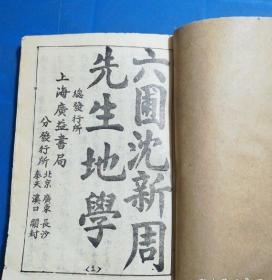 六圃沈新周
先生地學
總發行所
上海廣益書局
分發行所
北京 廣東 長沙
奉天 漢口 開封
(1)